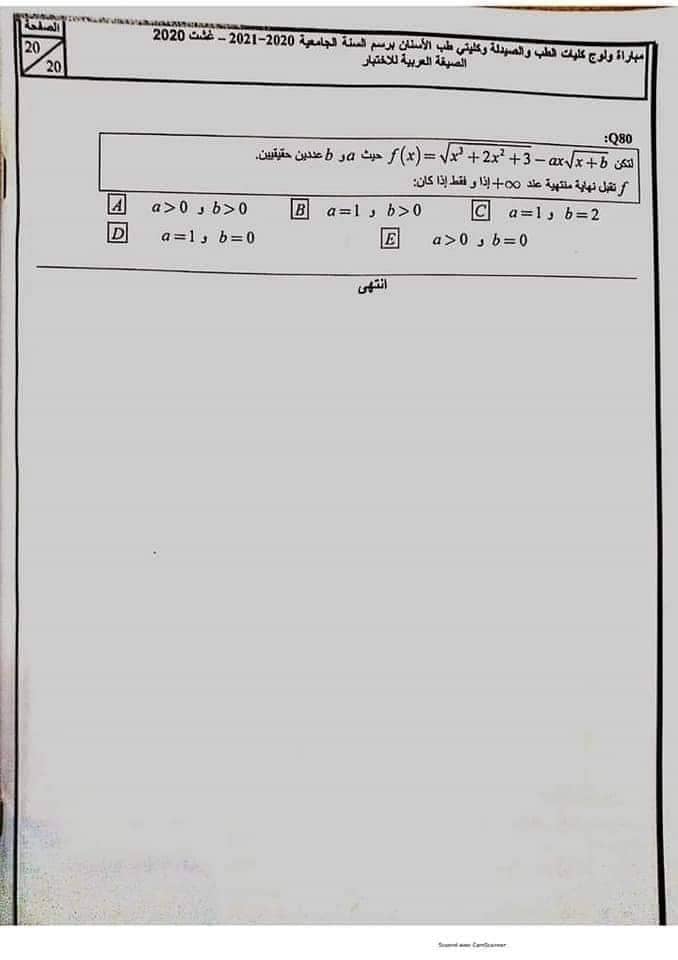 الصفحة
20
20
مباراة ولوج كليات الطب والصيدلة وكليتي طب الأسنان برسم السنة الجامعية 2020-2021 – غشت 2020
الصيغة العربية للاختبار
Q80:
لتكن f(x)=√(x³+2x²+3) − ax√(x+b) حيث a و b عددين حقيقيين.
f تقبل نهاية منتهية عند +∞ إذا و فقط إذا كان:
A a>0 و b>0 B a=1 و b>0 C a=1 و b=2
D a=1 و b=0 E a>0 و b=0
انتهى